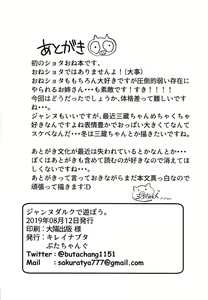 あとがき
初のショタおね本です、
おねショタではありませんよ！(大事)
おねショタももちろん大好きですが圧倒的弱い存在に
やられるお姉さん・・・も素敵です！すき！！！！
今回はどうだったでしょうか、体格差って難しいです
ね・・・。
ジャンヌもいいですが、最近三蔵ちゃんめちゃくちゃ
好きなんですよね表情豊かでおっぱい大きくてなんて
スケベなんだ・・冬は三蔵ちゃんとか描きたいですね。
あとがき文化が最近は失われているとかなんとか・・
ぼくはあとがきも含めて読むのが好きなので消えてほ
しくないですね・・・。
あとがきって言っておきながらまだ本文真っ白なので
頑張って描きます:D
ジャンヌダルクで遊ぼう。
2019年08月12日発行
印刷：大陽出版 様
発行：キレイナブタ
ぶたちゃんぐ
Twitter : @butachang1151
Mail : sakuratyo777@gmail.com